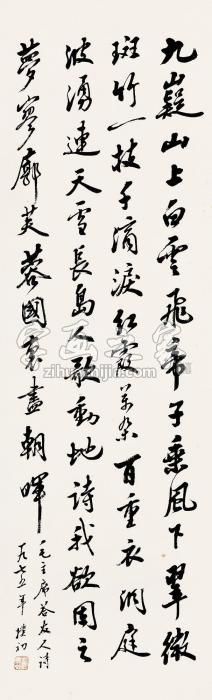 九嶷山上白雲飛帝子乘風下翠微
斑竹一枝千滴淚紅霞萬朵百重衣洞庭
波湧連天雪長島人歌動地詩我欲因之
夢寥廓芙蓉國裏盡朝暉
毛主席答友人詩
一九七五年 樸初
字画之家
zihuazhijia.com